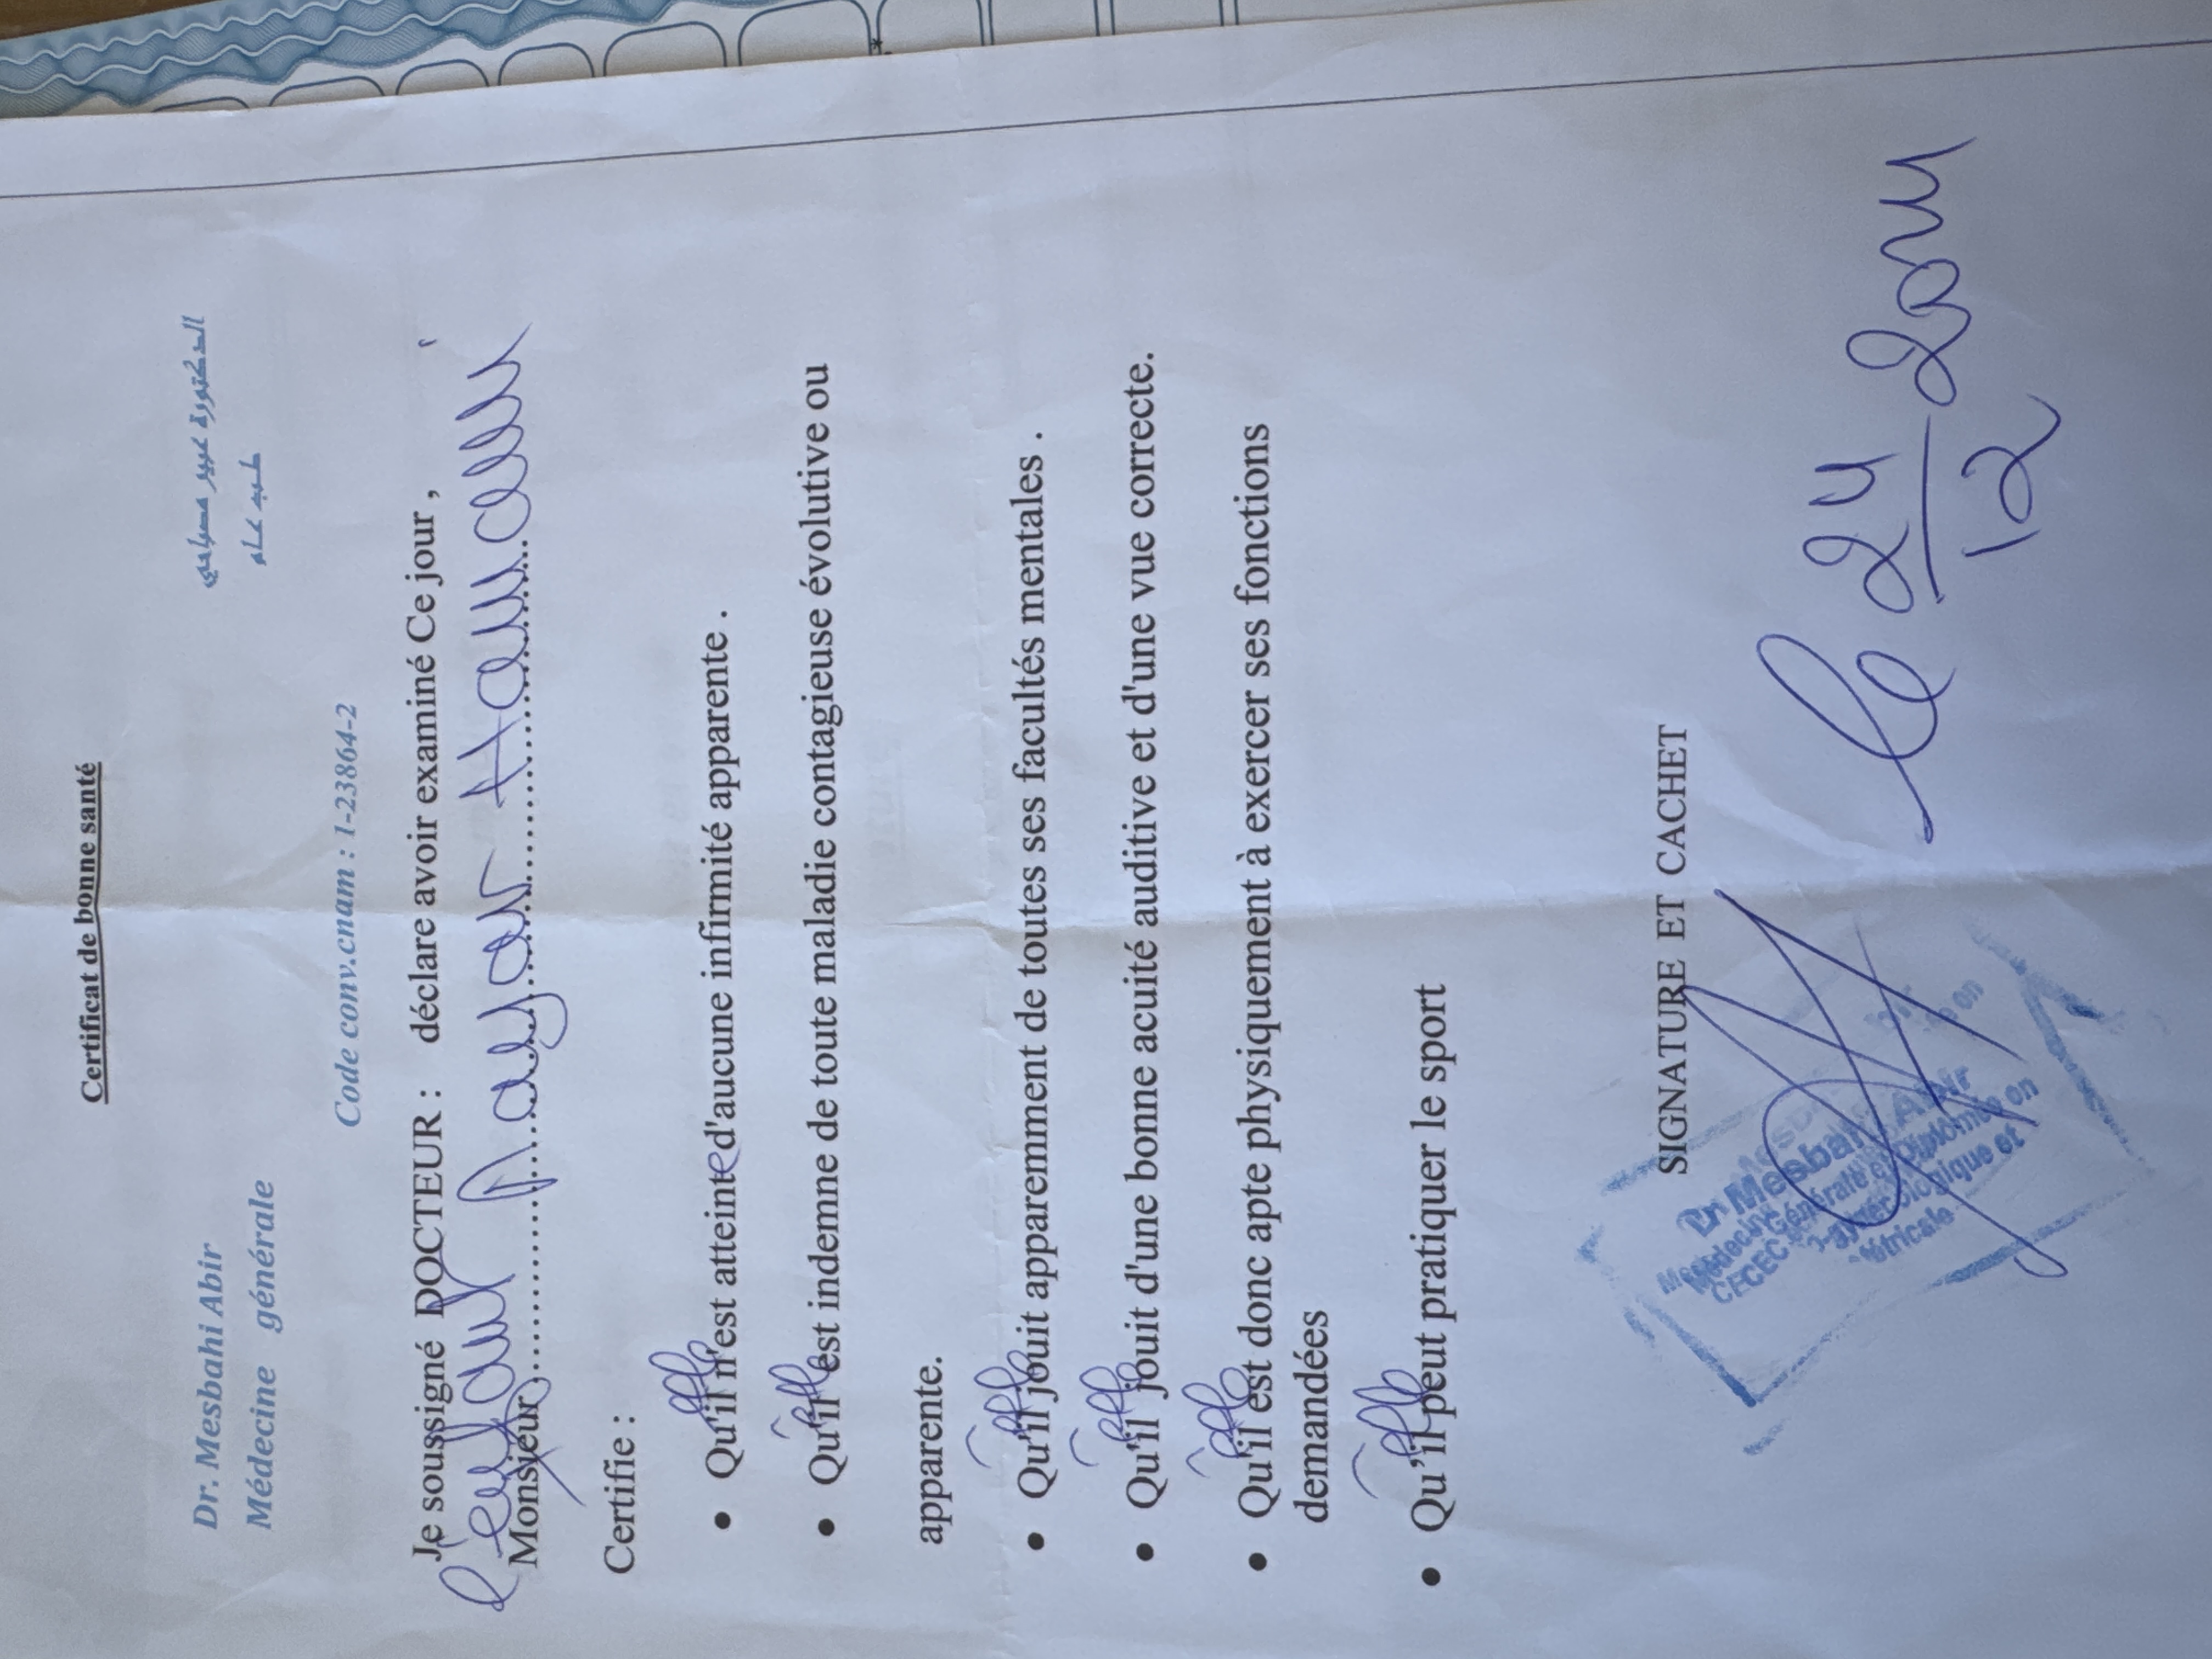 Certificat de bonne santé
Dr. Mesbahi Abir الدكتورة عبير مصباحي
Médecine générale طب عام
Code conv.cnam : 1-23864-2
Je soussigné DOCTEUR : déclare avoir examiné Ce jour ,
l'enfant
Monsieur
Certifie :
• Qu'il n'est atteinte d'aucune infirmité apparente .
elle
• Qu'il est indemne de toute maladie contagieuse évolutive ou
elle
apparente.
• Qu'il jouit apparemment de toutes ses facultés mentales .
elle
• Qu'il jouit d'une bonne acuité auditive et d'une vue correcte.
elle
• Qu'il est donc apte physiquement à exercer ses fonctions
elle
demandées
• Qu'il peut pratiquer le sport
elle
SIGNATURE ET CACHET
Dr Mesbahi Abir
Médecine Générale et Diplômée en
CECEC
le 24
12